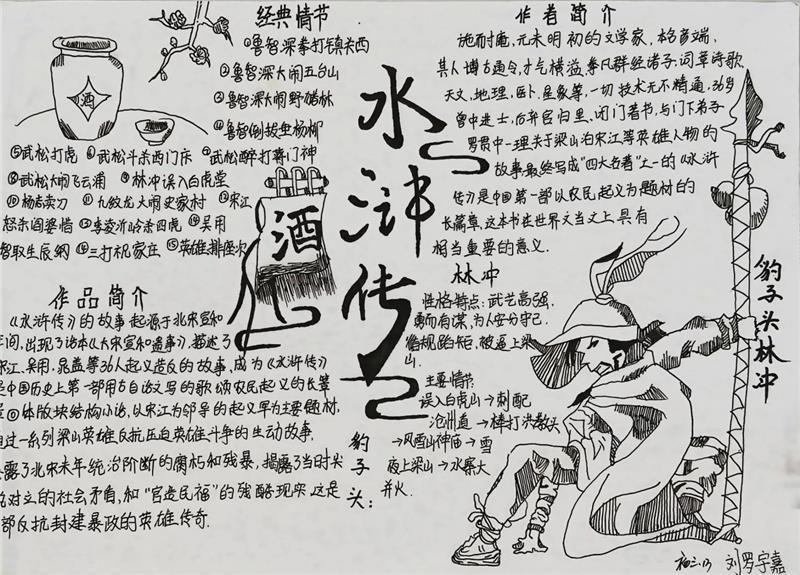 经典情节
①鲁智深拳打镇关西
②鲁智深大闹五台山
③鲁智深大闹野猪林
④鲁智深倒拔垂杨柳
⑤武松打虎 ⑥武松斗杀西门庆 ⑦武松醉打蒋门神
⑧武松大闹飞云浦 ⑨林冲误入白虎堂
⑩杨志卖刀 ⑪九纹龙大闹史家村 ⑫宋江
怒杀阎婆惜 ⑬李逵沂岭杀四虎 ⑭吴用
智取生辰纲 ⑭三打祝家庄 ⑮英雄排座次
酒
酒
水浒传
作者简介
施耐庵,元末明初的文学家,本名彦端,
其人博古通今,才气横溢,举凡群经诸子,词章诗歌
天文,地理,医卜,星象等,一切技术无不精通,36岁
曾中进士,后弃官归里,闭门著书,与门下弟子
罗贯中一理关于梁山泊宋江等英雄人物的
故事,最终写成“四大名著”之一的《水浒
传》是中国第一部以农民起义为题材的
长篇章,这本书在世界文当文上具有
相当重要的意义.
林冲
性格特点:武艺高强.
勇而有谋,为人安分守己.
循规蹈矩,被逼上梁
山.
主要情节
误入白虎山→刺配
沧州道→棒打洪教头
→风雪山神庙→雪
夜上梁山→水寨大
并火.
豹子头:
豹子头林冲
作品简介
《水浒传》的故事起源于北宋宣和
年间,出现了话本《大宋宣和遗事》.描述了
宋江、吴用,晁盖等36人起义造反的故事,成为《水浒传》
是中国历史上第一部用古白话文写的歌颂农民起义的长篇
章回体版块结构小说,以宋江为领导的起义军为主要题材,
通过一系列梁山英雄反抗压迫英雄斗争的生动故事.
暴露了北宋末年统治阶断的腐朽和残暴,揭露了当时尖
锐对立的社会矛盾,和“官逼民福”的残酷现实.这是
部反抗封建暴政的英雄传奇.
刘罗宇嘉